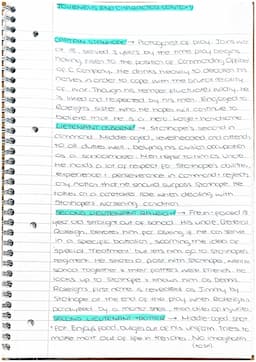 JOURNEY'S END CHARACTER CONTEXT
CAPTAIN STANHOPE → Protagonist of play. Joins war
at 18, served 3 years by the time play begins,
having risen to the position of Commanding Officer
of C Company. He drinks heavily to
nerves in order to cope with the brutal reality
of war. Though his temper fluctuates wildly, he
is liked and respected by his men. Engaged to
Raleigh's sister who he hopes will continue to
believe that he is a hero.
LIEUTENANT OSBORNE → Stanhope's second in
command. Middle aged, level headed and attends
to all duties well. Before his civilian occupation
as a schoolmaster. Men refer to him as uncle.
He holds a lot of respect for Stanhope's
experience + perseverance in command; rejects
any notion that he should surpass Stanhope. He
takes on a role when dealing with
Stanhope's worsening condition.
SECOND LIEUTENANT RALEIGH → Fresh faced 18
year old straight out of school. His uncle, General
Raleigh, berates him for asking if he can serve
in a specific battalion, the idea of
special treatment, but lets him go to Stanhope's
regiment. He shared a past with Stanhope, went to
school together + their fathers were friends. He
looks up to Stanhope + knows him as Dennis.
Raleigh's first name is revealed as Jimmy by
Stanhope at the end of the play when Raleigh is
paralysed by a mortar shell, then dies of injuries.
SECOND LIEUTENANT TROTTER → Middle aged
for English food, bulges out of his uniform. Tries to
make most out of life in trenches. No imagination